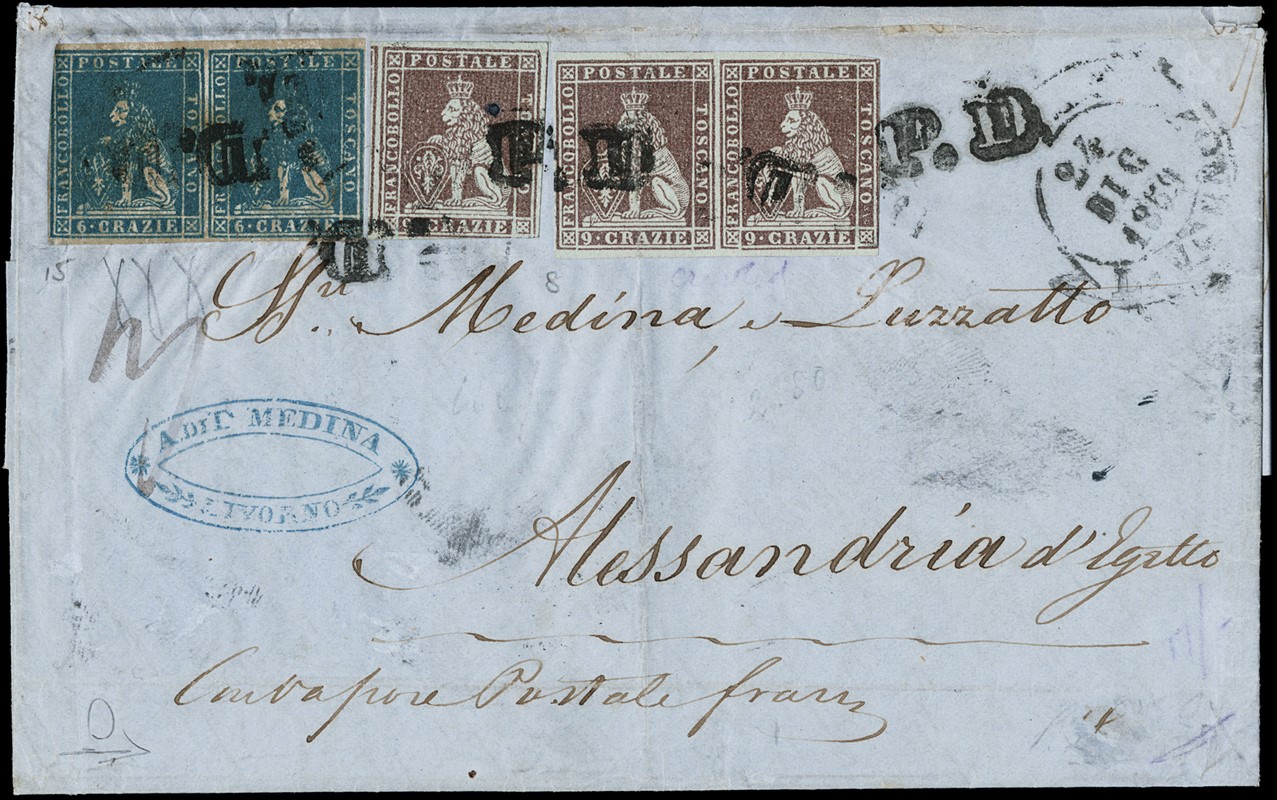 POSTALE TOSCANO FRANCOBOLLO 6·CRAZIE
POSTALE TOSCANO FRANCOBOLLO 6·CRAZIE
POSTALE FRANCOBOLLO 9·CRAZIE
POSTALE TOSCANO FRANCOBOLLO 9·CRAZIE
POSTALE TOSCANO FRANCOBOLLO 9·CRAZIE
P.D.
P.D.
24
DIC
1859
LIVORNO
15
8
Medina e Luzzatto
2.50
A. DI T. MEDINA
LIVORNO
Alessandria d'Egitto
Con vapore Postale franc